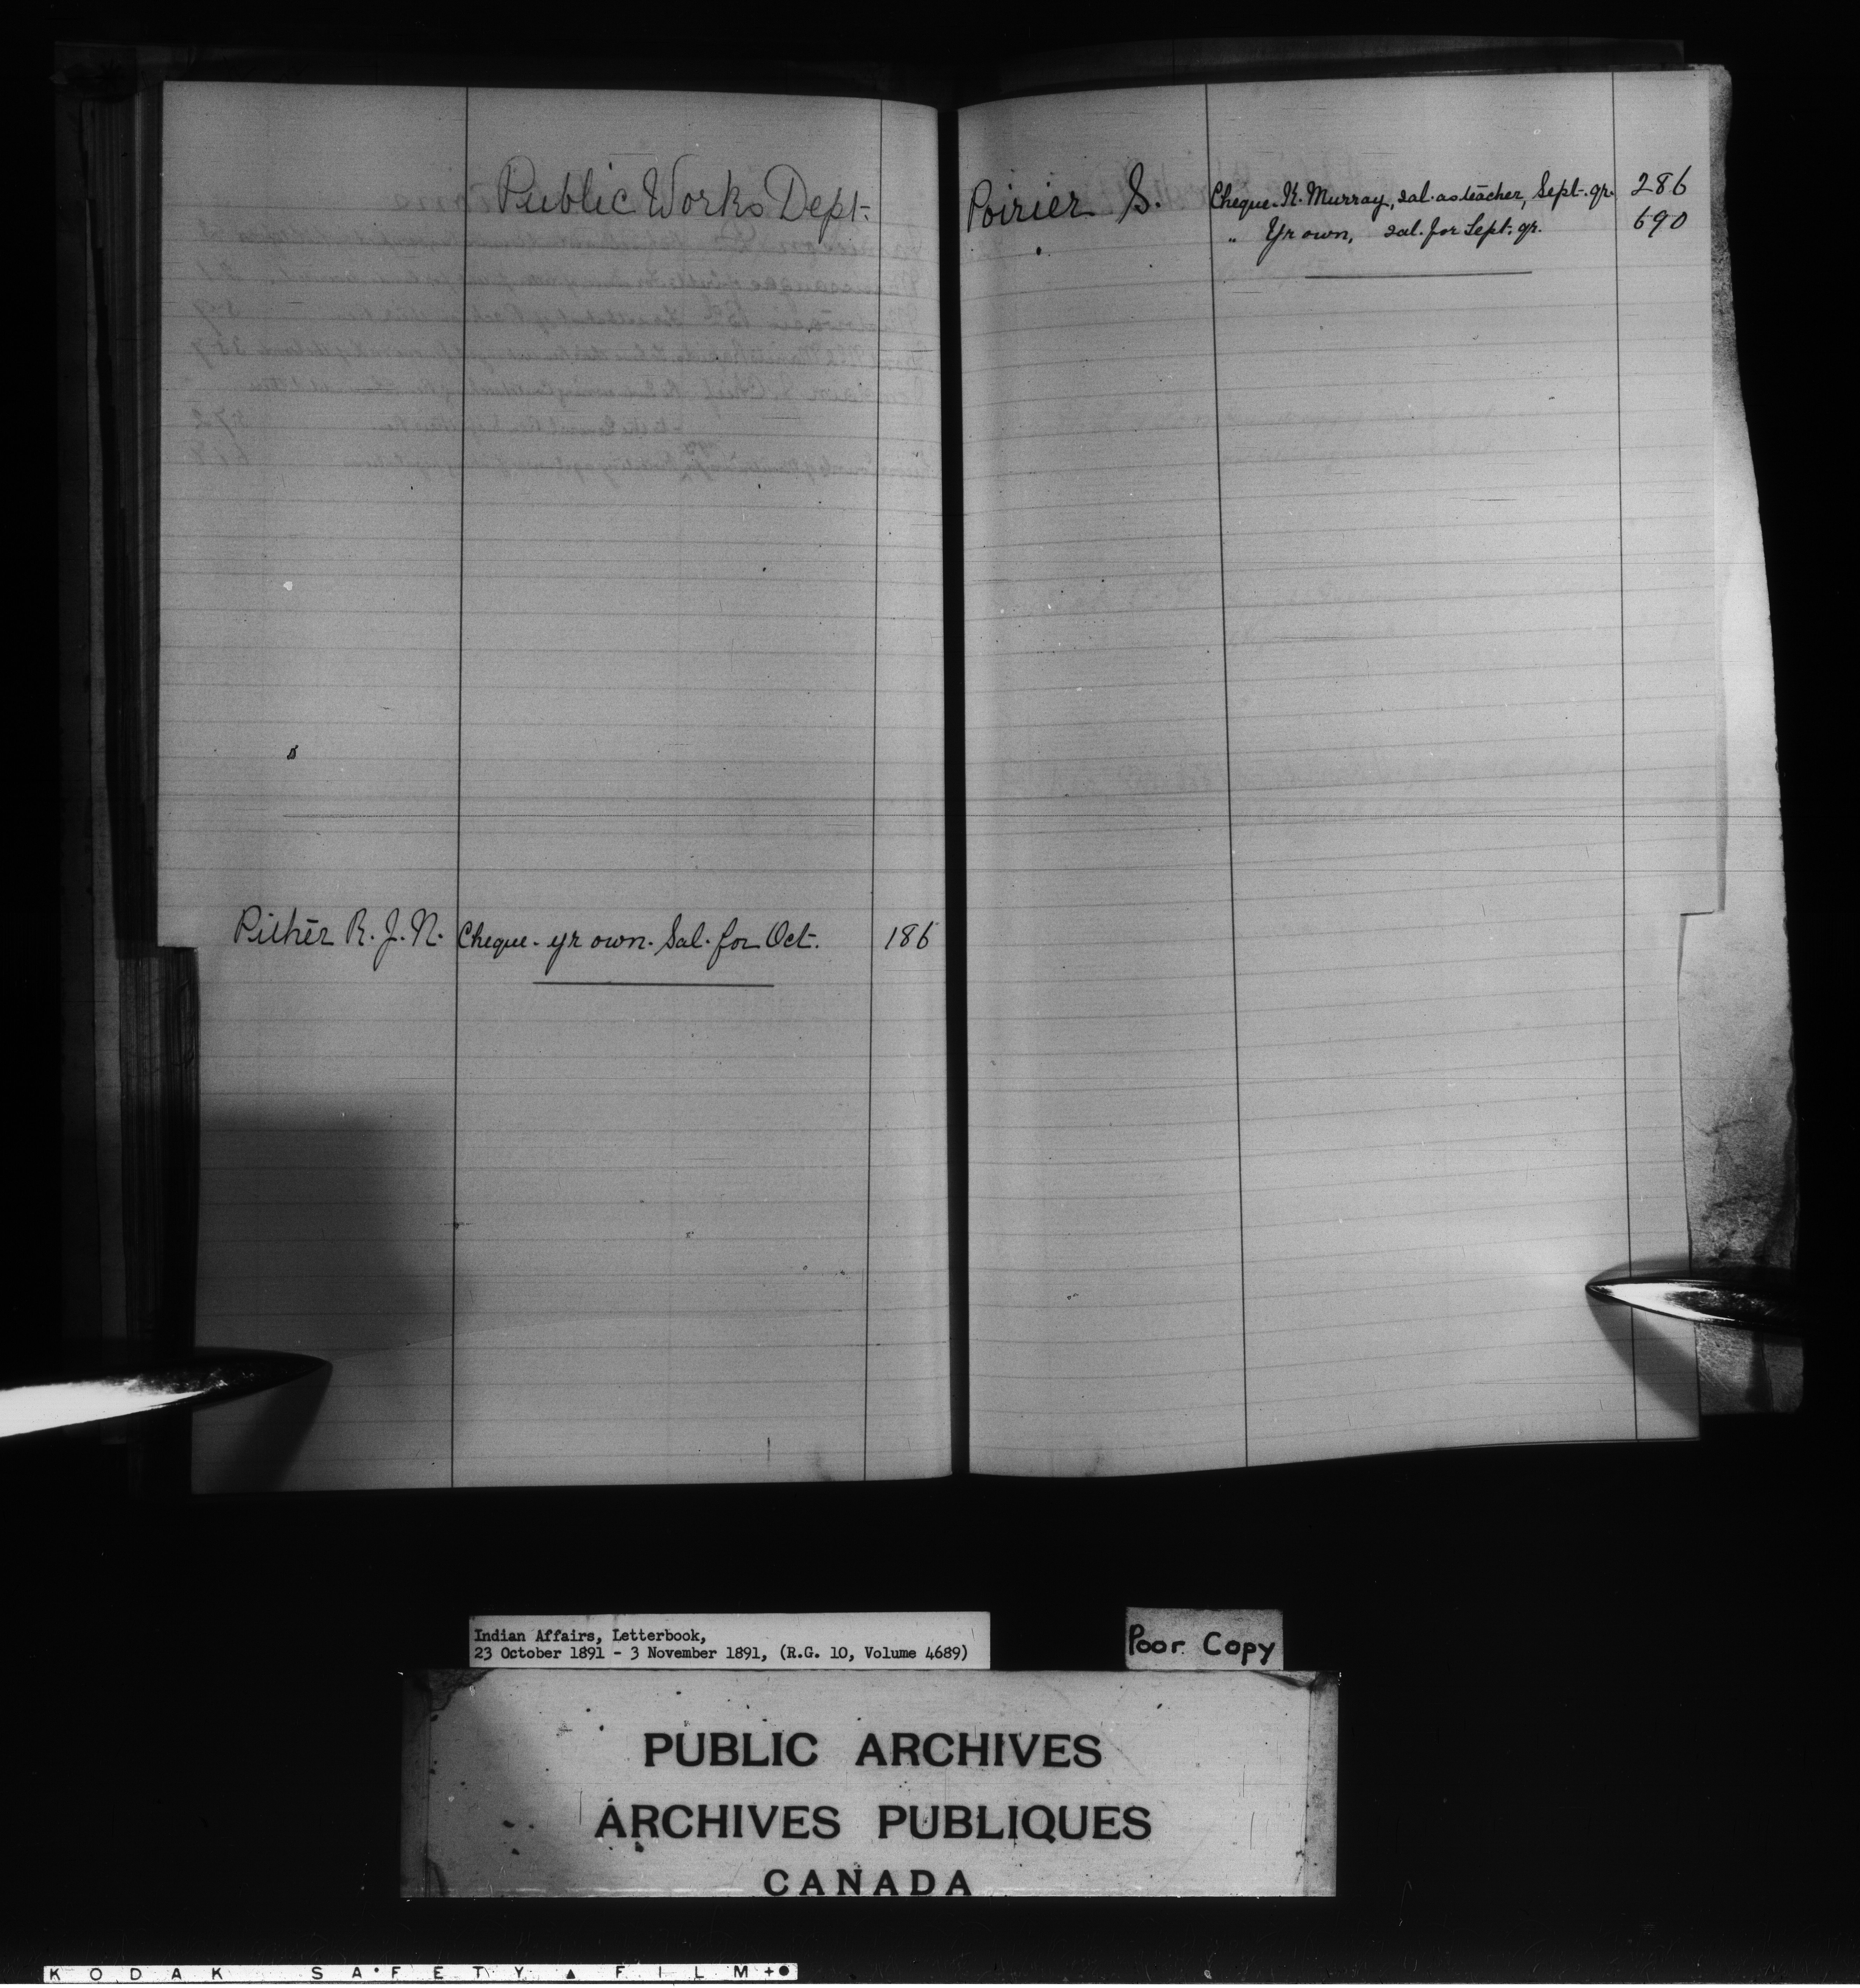 Public Works Dept.
Pither R. J. N. Cheque. yr own. Sal. for Oct. 186
Poirier S. Cheque. K. Murray, sal. as teacher, Sept. qr. 286
" Yr own, sal. for Sept. qr. 690
Indian Affairs, Letterbook,
23 October 1891 - 3 November 1891, (R.G. 10, Volume 4689)
Poor Copy
PUBLIC ARCHIVES
ARCHIVES PUBLIQUES
CANADA
KODAK SAFETY FILM